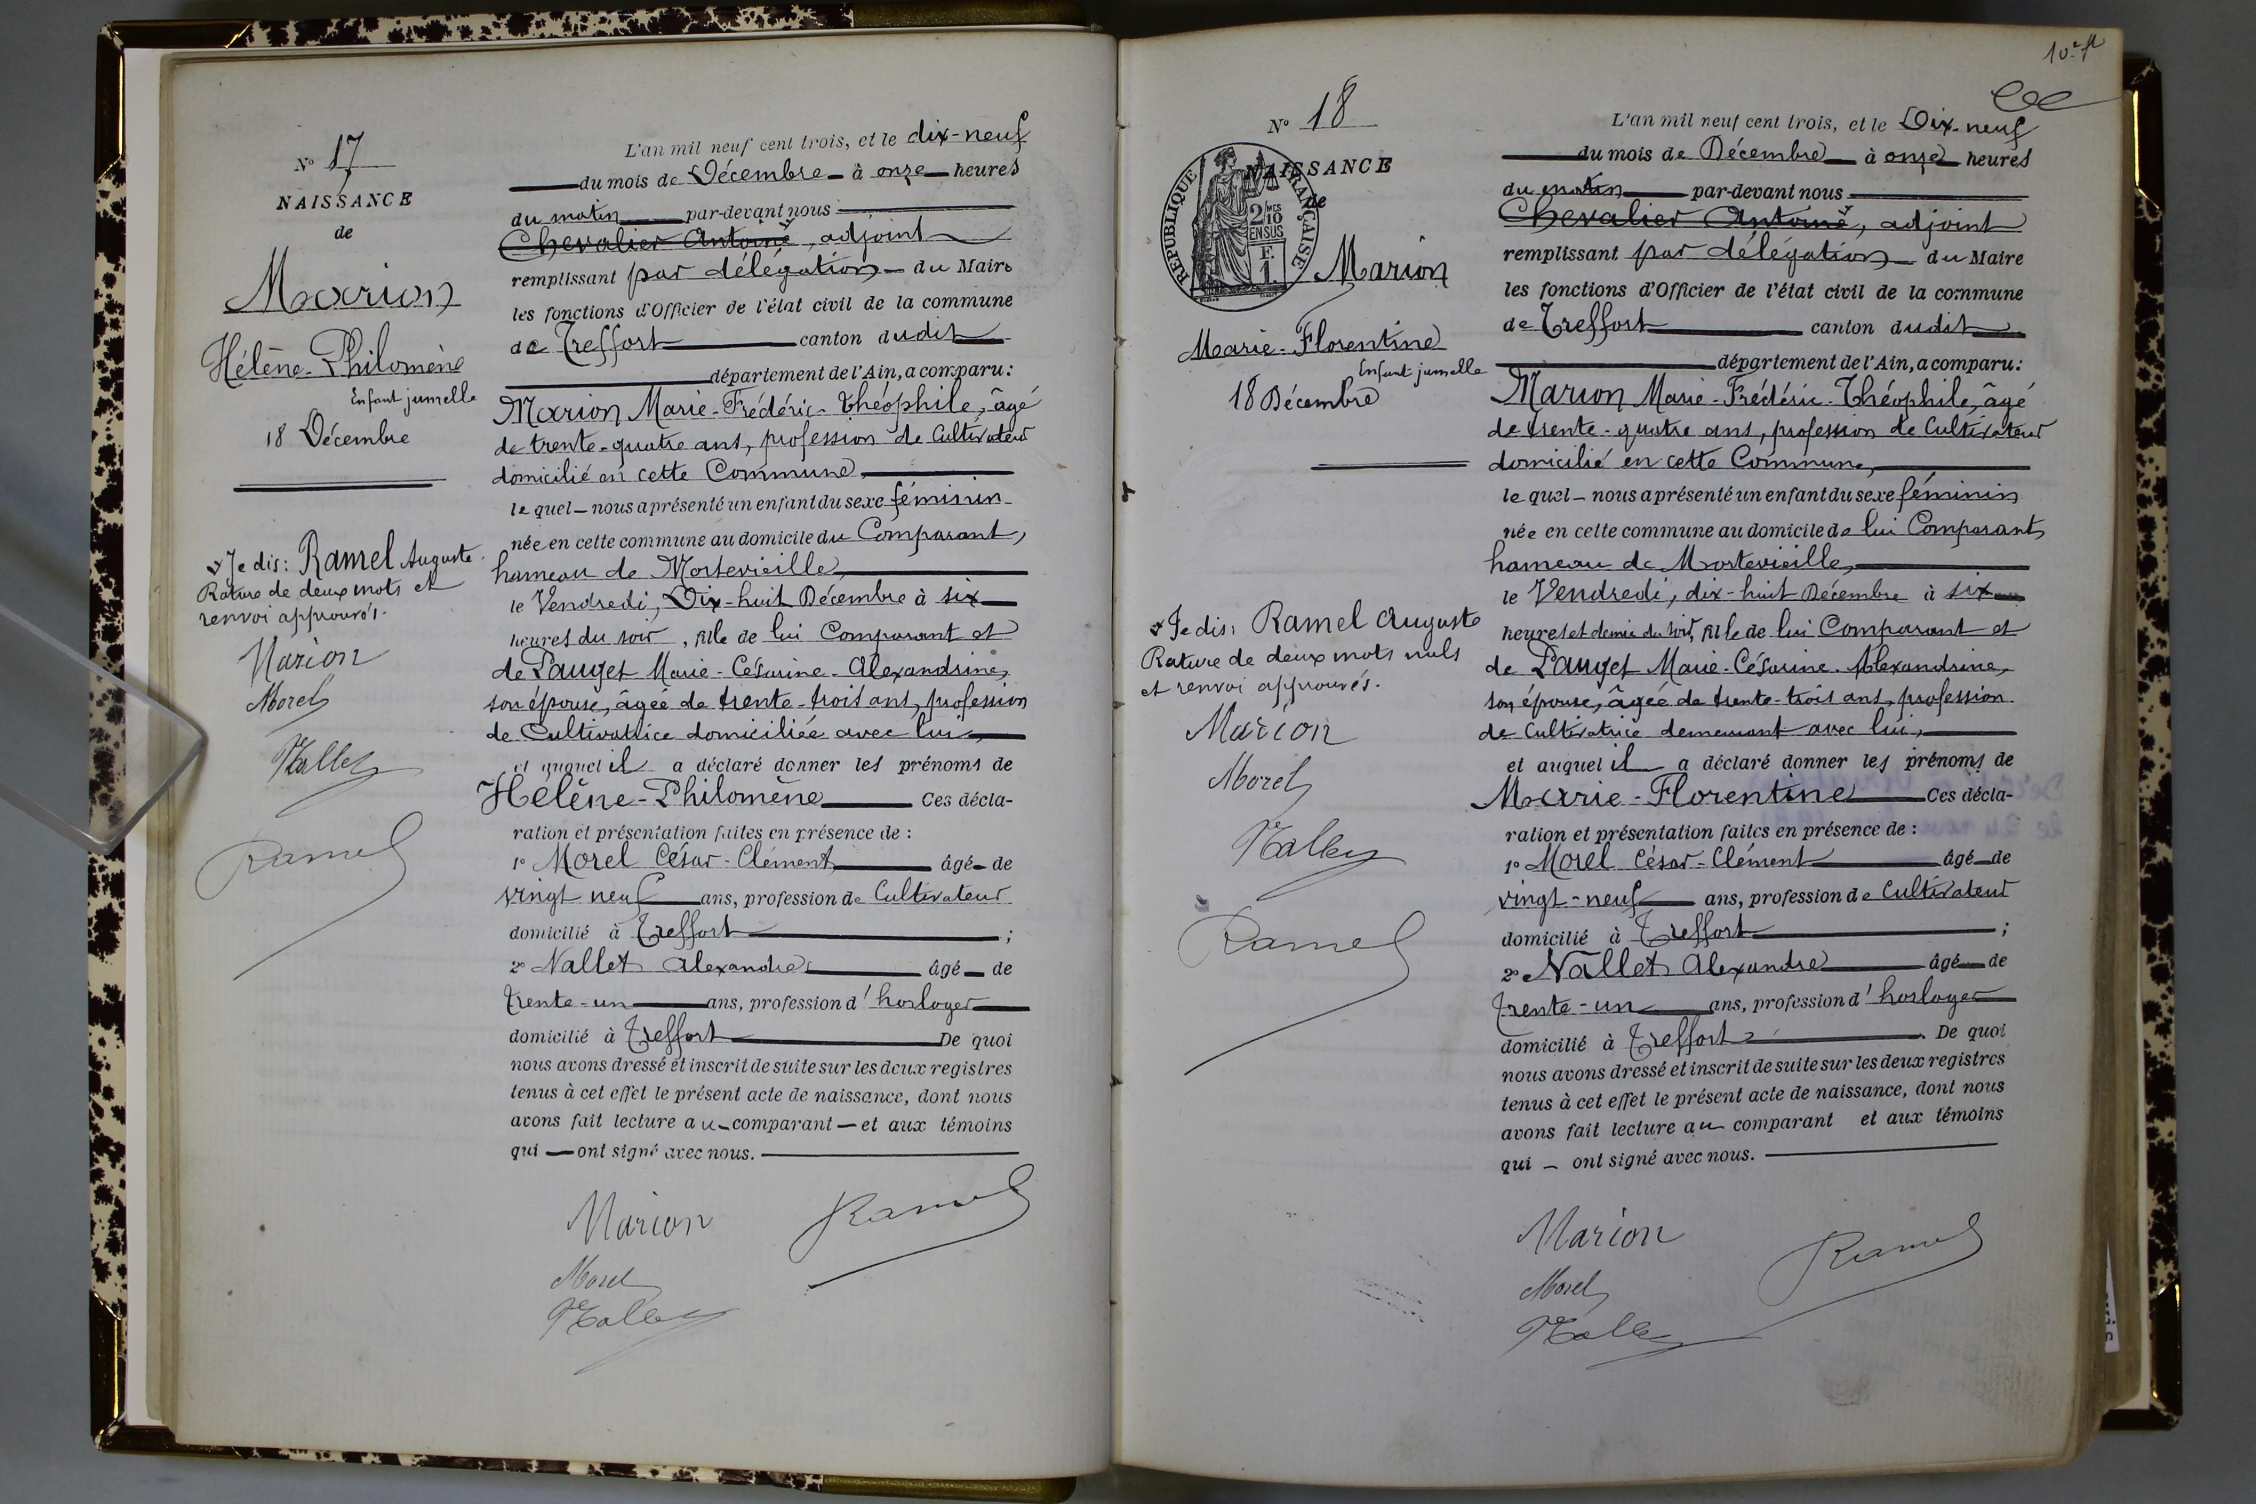 N° 17
NAISSANCE
de
Marion
Hélène-Philomène
Enfant jumelle
18 Décembre
Je dis: Ramel Auguste
Rature de deux mots et
renvoi approuvés.
Marion
Morel
Nallet
Ramel
L'an mil neuf cent trois, et le dix-neuf
du mois de Décembre à onze heures
du matin par-devant nous
Chevalier Antoine, adjoint
remplissant par délégation du Maire
les fonctions d'Officier de l'état civil de la commune
de Treffort canton dudit
département de l'Ain, a comparu:
Marion Marie-Frédéric-Théophile, âgé
de trente-quatre ans, profession de Cultivateur
domicilié en cette Commune
le quel nous a présenté un enfant du sexe féminin
née en cette commune au domicile du Comparant,
hameau de Mortevieille,
le Vendredi, Dix-huit Décembre à six
heures du soir, fille de lui Comparant et
de Pauget Marie-Césarine-Alexandrine,
son épouse, âgée de trente-trois ans, profession
de Cultivatrice domiciliée avec lui,
et auquel il a déclaré donner les prénoms de
Hélène-Philomène Ces décla-
ration et présentation faites en présence de :
1° Morel César-Clément âgé de
vingt neuf ans, profession de Cultivateur
domicilié à Treffort ;
2° Nallet Alexandre âgé de
trente-un ans, profession d'horloger
domicilié à Treffort De quoi
nous avons dressé et inscrit de suite sur les deux registres
tenus à cet effet le présent acte de naissance, dont nous
avons fait lecture au comparant et aux témoins
qui ont signé avec nous.
Marion
Ramel
Morel
Nallet
N° 18
NAISSANCE
de
RÉPUBLIQUE FRANÇAISE
2/10 EN SUS
F. 1
Marion
Marie-Florentine
Enfant jumelle
18 Décembre
Je dis: Ramel Auguste
Rature de deux mots nuls
et renvoi approuvés.
Marion
Morel
Nallet
Ramel
L'an mil neuf cent trois, et le Dix-neuf
du mois de Décembre à onze heures
du matin par-devant nous
Chevalier Antoine, adjoint
remplissant par délégation du Maire
les fonctions d'Officier de l'état civil de la commune
de Treffort canton dudit
département de l'Ain, a comparu:
Marion Marie-Frédéric-Théophile, âgé
de trente-quatre ans, profession de Cultivateur
domicilié en cette Commune,
le quel nous a présenté un enfant du sexe féminin
née en cette commune au domicile de lui Comparant,
hameau de Mortevieille,
le Vendredi, dix-huit Décembre à six
heures et demie du soir, fille de lui Comparant et
de Pauget Marie-Césarine-Alexandrine,
son épouse, âgée de trente-trois ans, profession
de Cultivatrice demeurant avec lui,
et auquel il a déclaré donner les prénoms de
Marie-Florentine Ces décla-
ration et présentation faites en présence de :
1° Morel César-Clément âgé de
vingt-neuf ans, profession de Cultivateur
domicilié à Treffort ;
2° Nallet Alexandre âgé de
trente-un ans, profession d'horloger
domicilié à Treffort De quoi
nous avons dressé et inscrit de suite sur les deux registres
tenus à cet effet le présent acte de naissance, dont nous
avons fait lecture au comparant et aux témoins
qui ont signé avec nous.
Marion
Ramel
Morel
Nallet